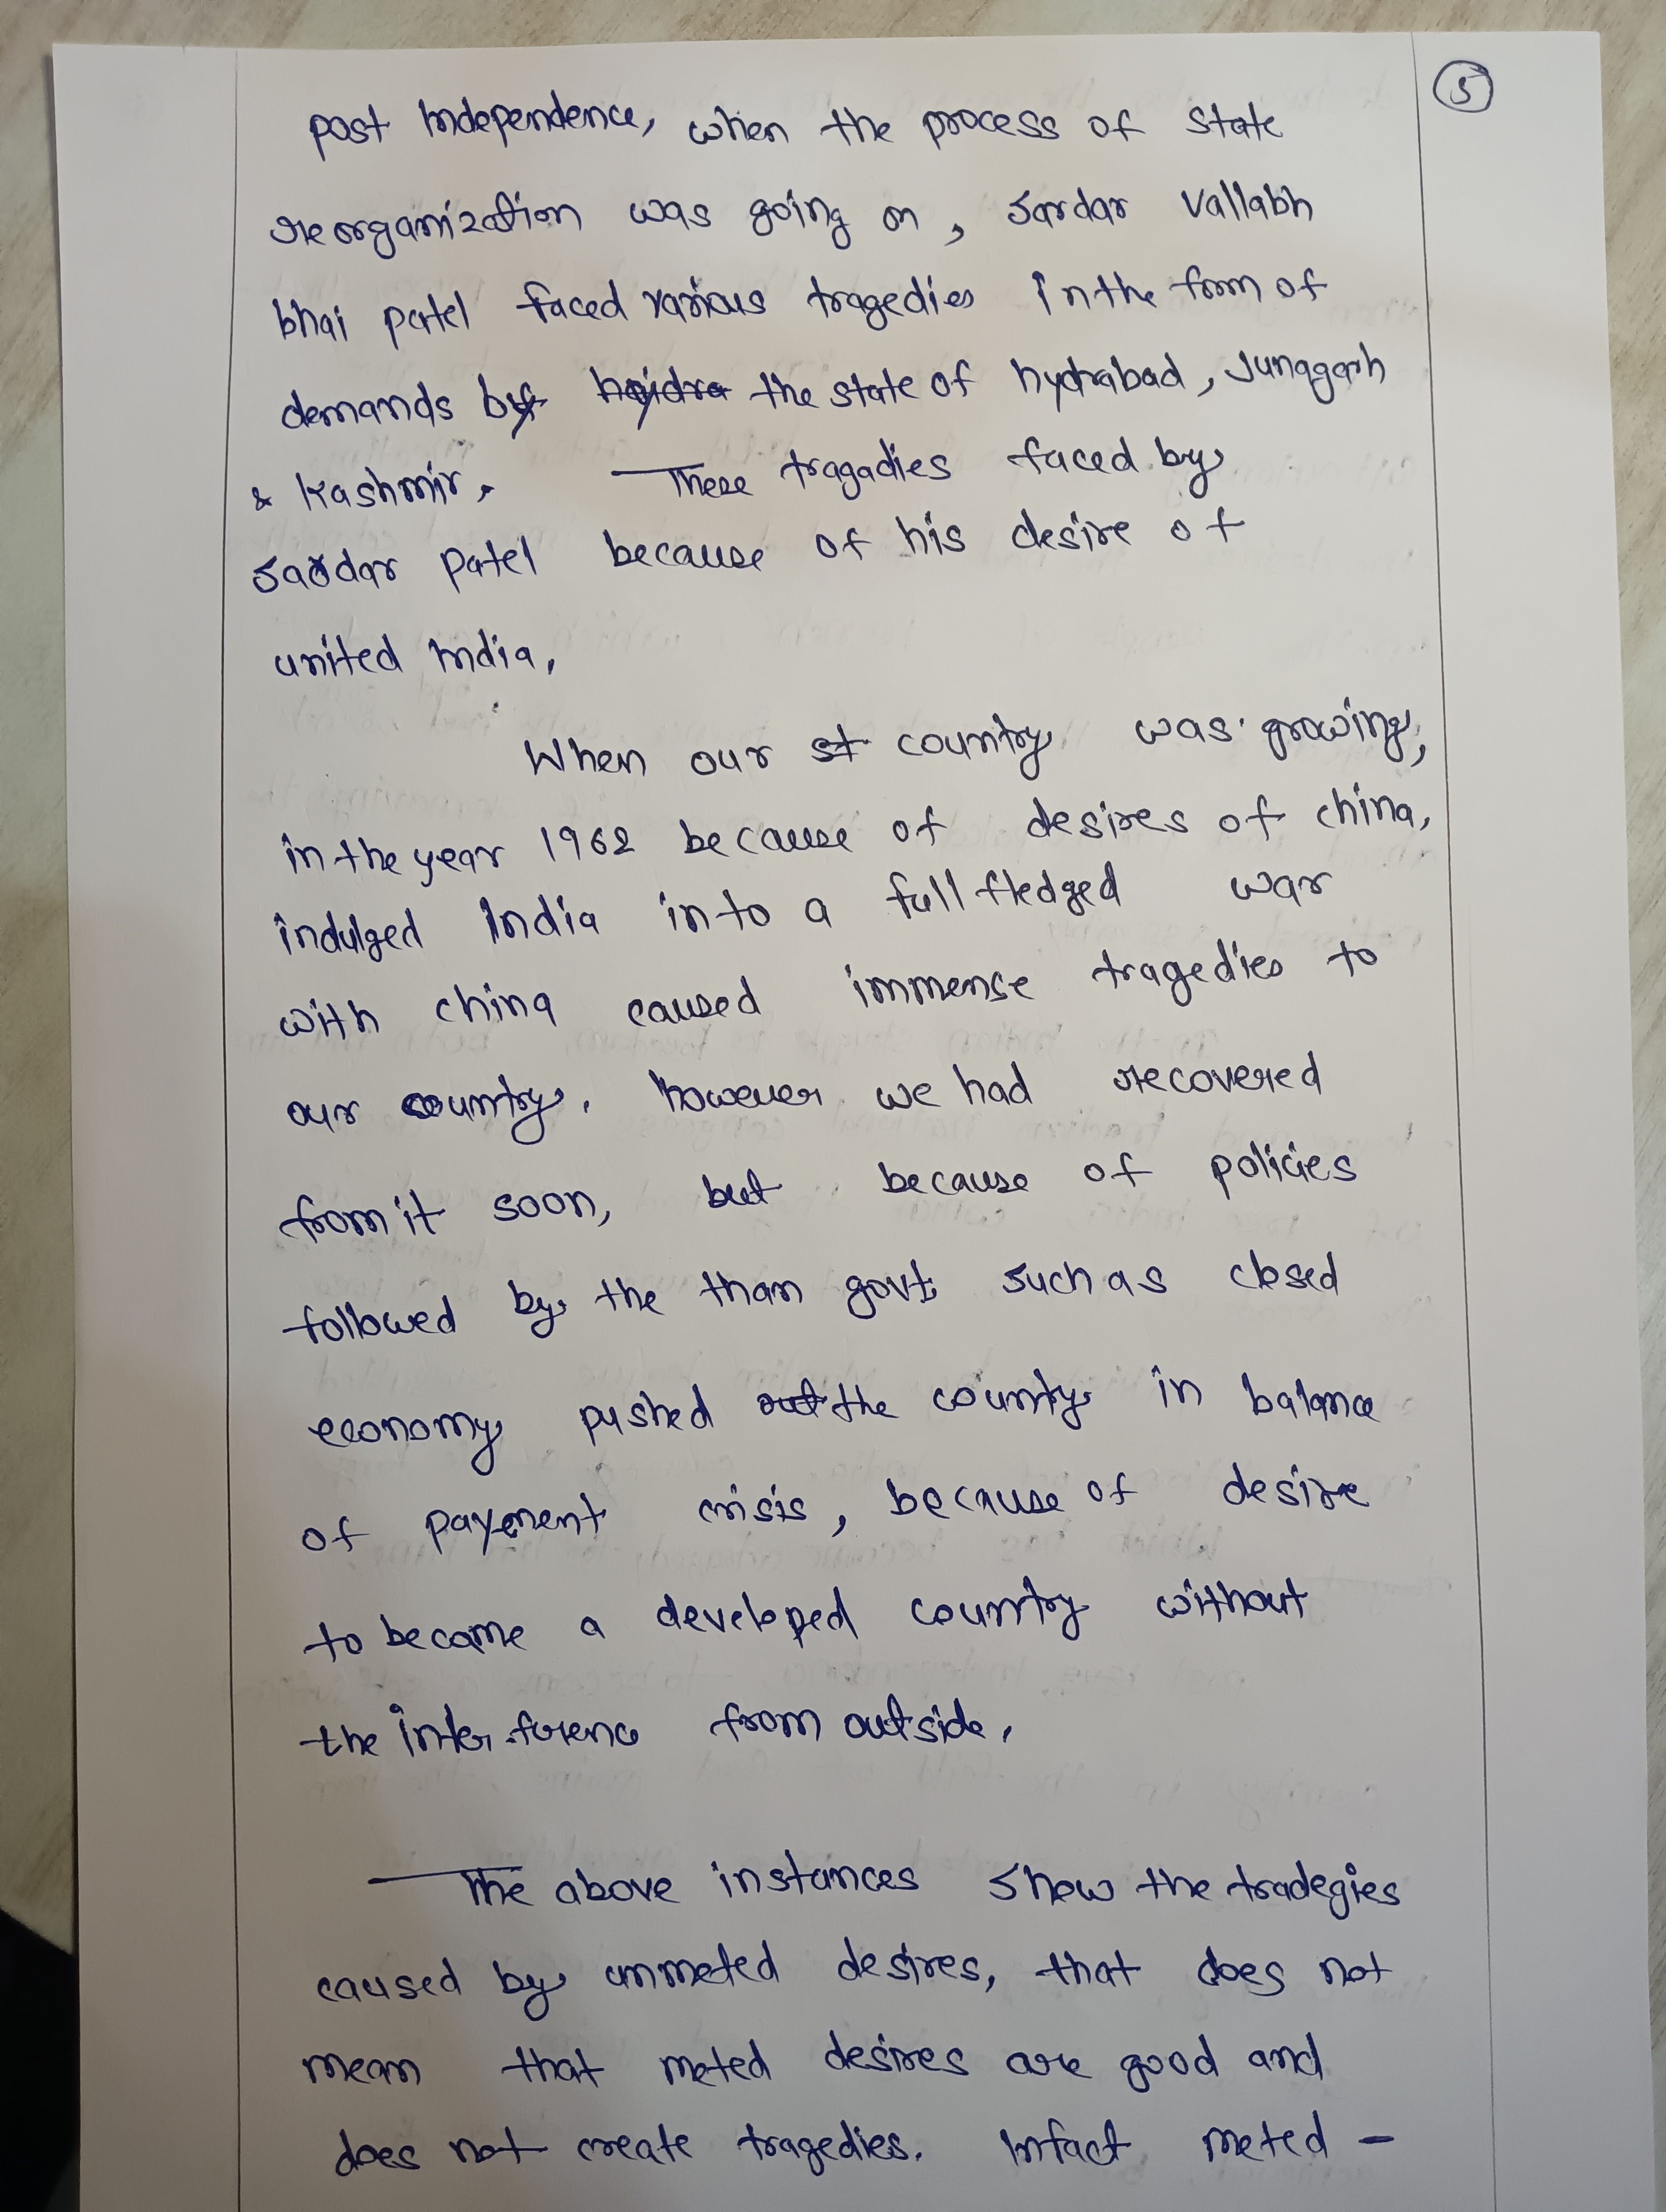 5
post Independence, when the process of state
reorganization was going on, Sardar Vallabh
bhai patel faced various tragedies in the form of
demands by the state of hydrabad, Junagarh
& Kashmir. These tragadies faced by
Sardar patel because of his desire of
united India,
When our country was growing,
in the year 1962 because of desires of china,
indulged India into a full fledged war
with china caused immense tragedies to
our country. however we had recovered
from it soon, but because of policies
followed by the than govt. such as closed
economy pushed the country in balance
of payment crisis, because of desire
to become a developed country without
the interference from outside.
The above instances show the tradegies
caused by unmeted desires, that does not
mean that meted desires are good and
does not create tragedies. Infact meted -